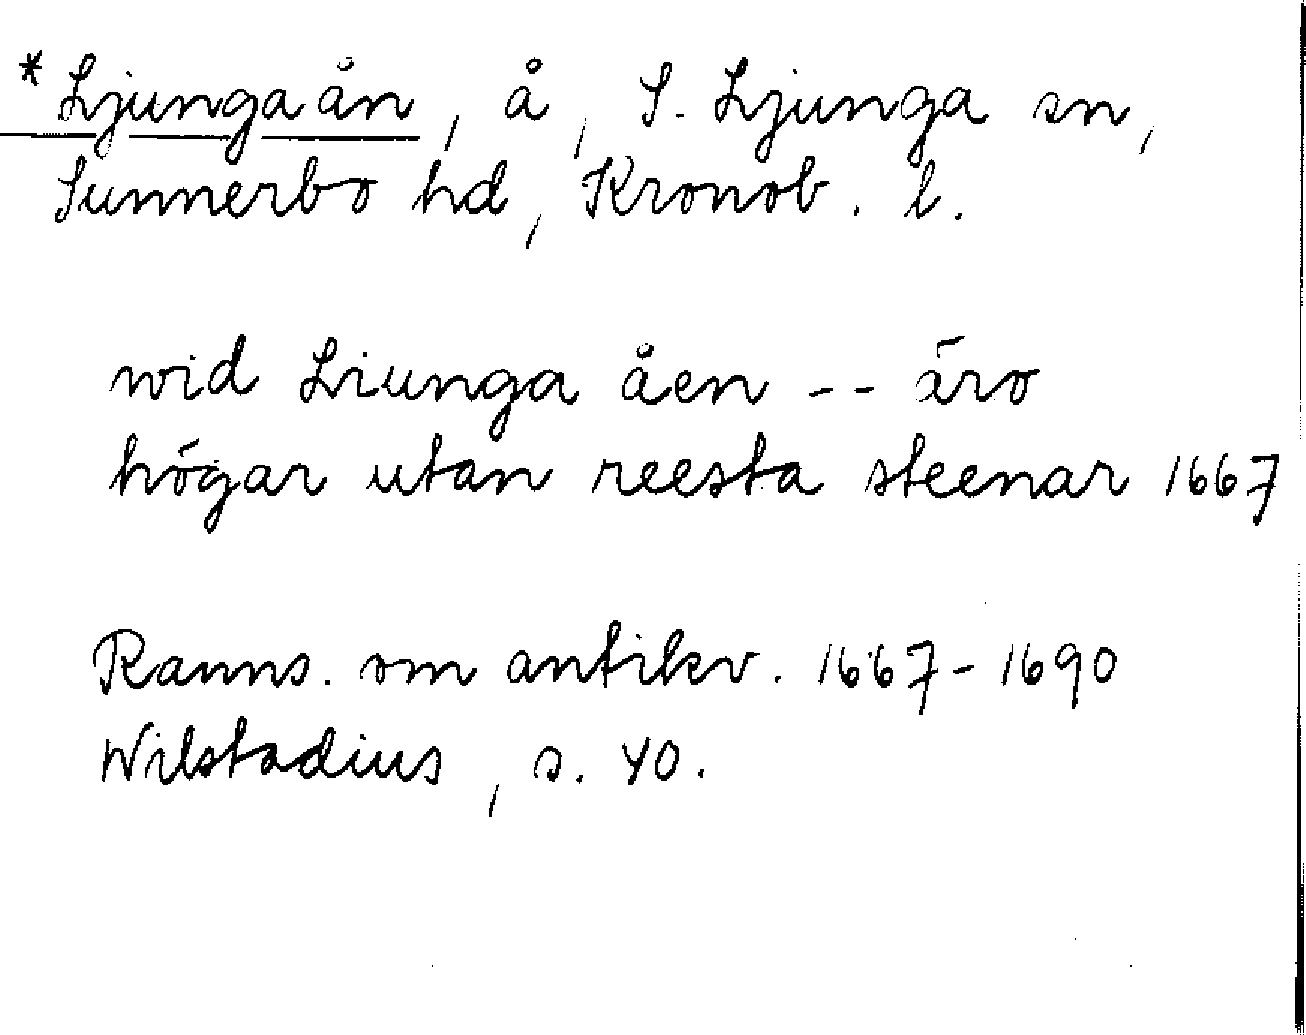 * Ljungaån, å, S. Ljunga sn,
Sunnerbo hd, Kronob. l.
wid Liunga åen -- äro
högar utan reesta steenar 1667
Ranns. om antikv. 1667-1690
Wilstadius, s. 40.